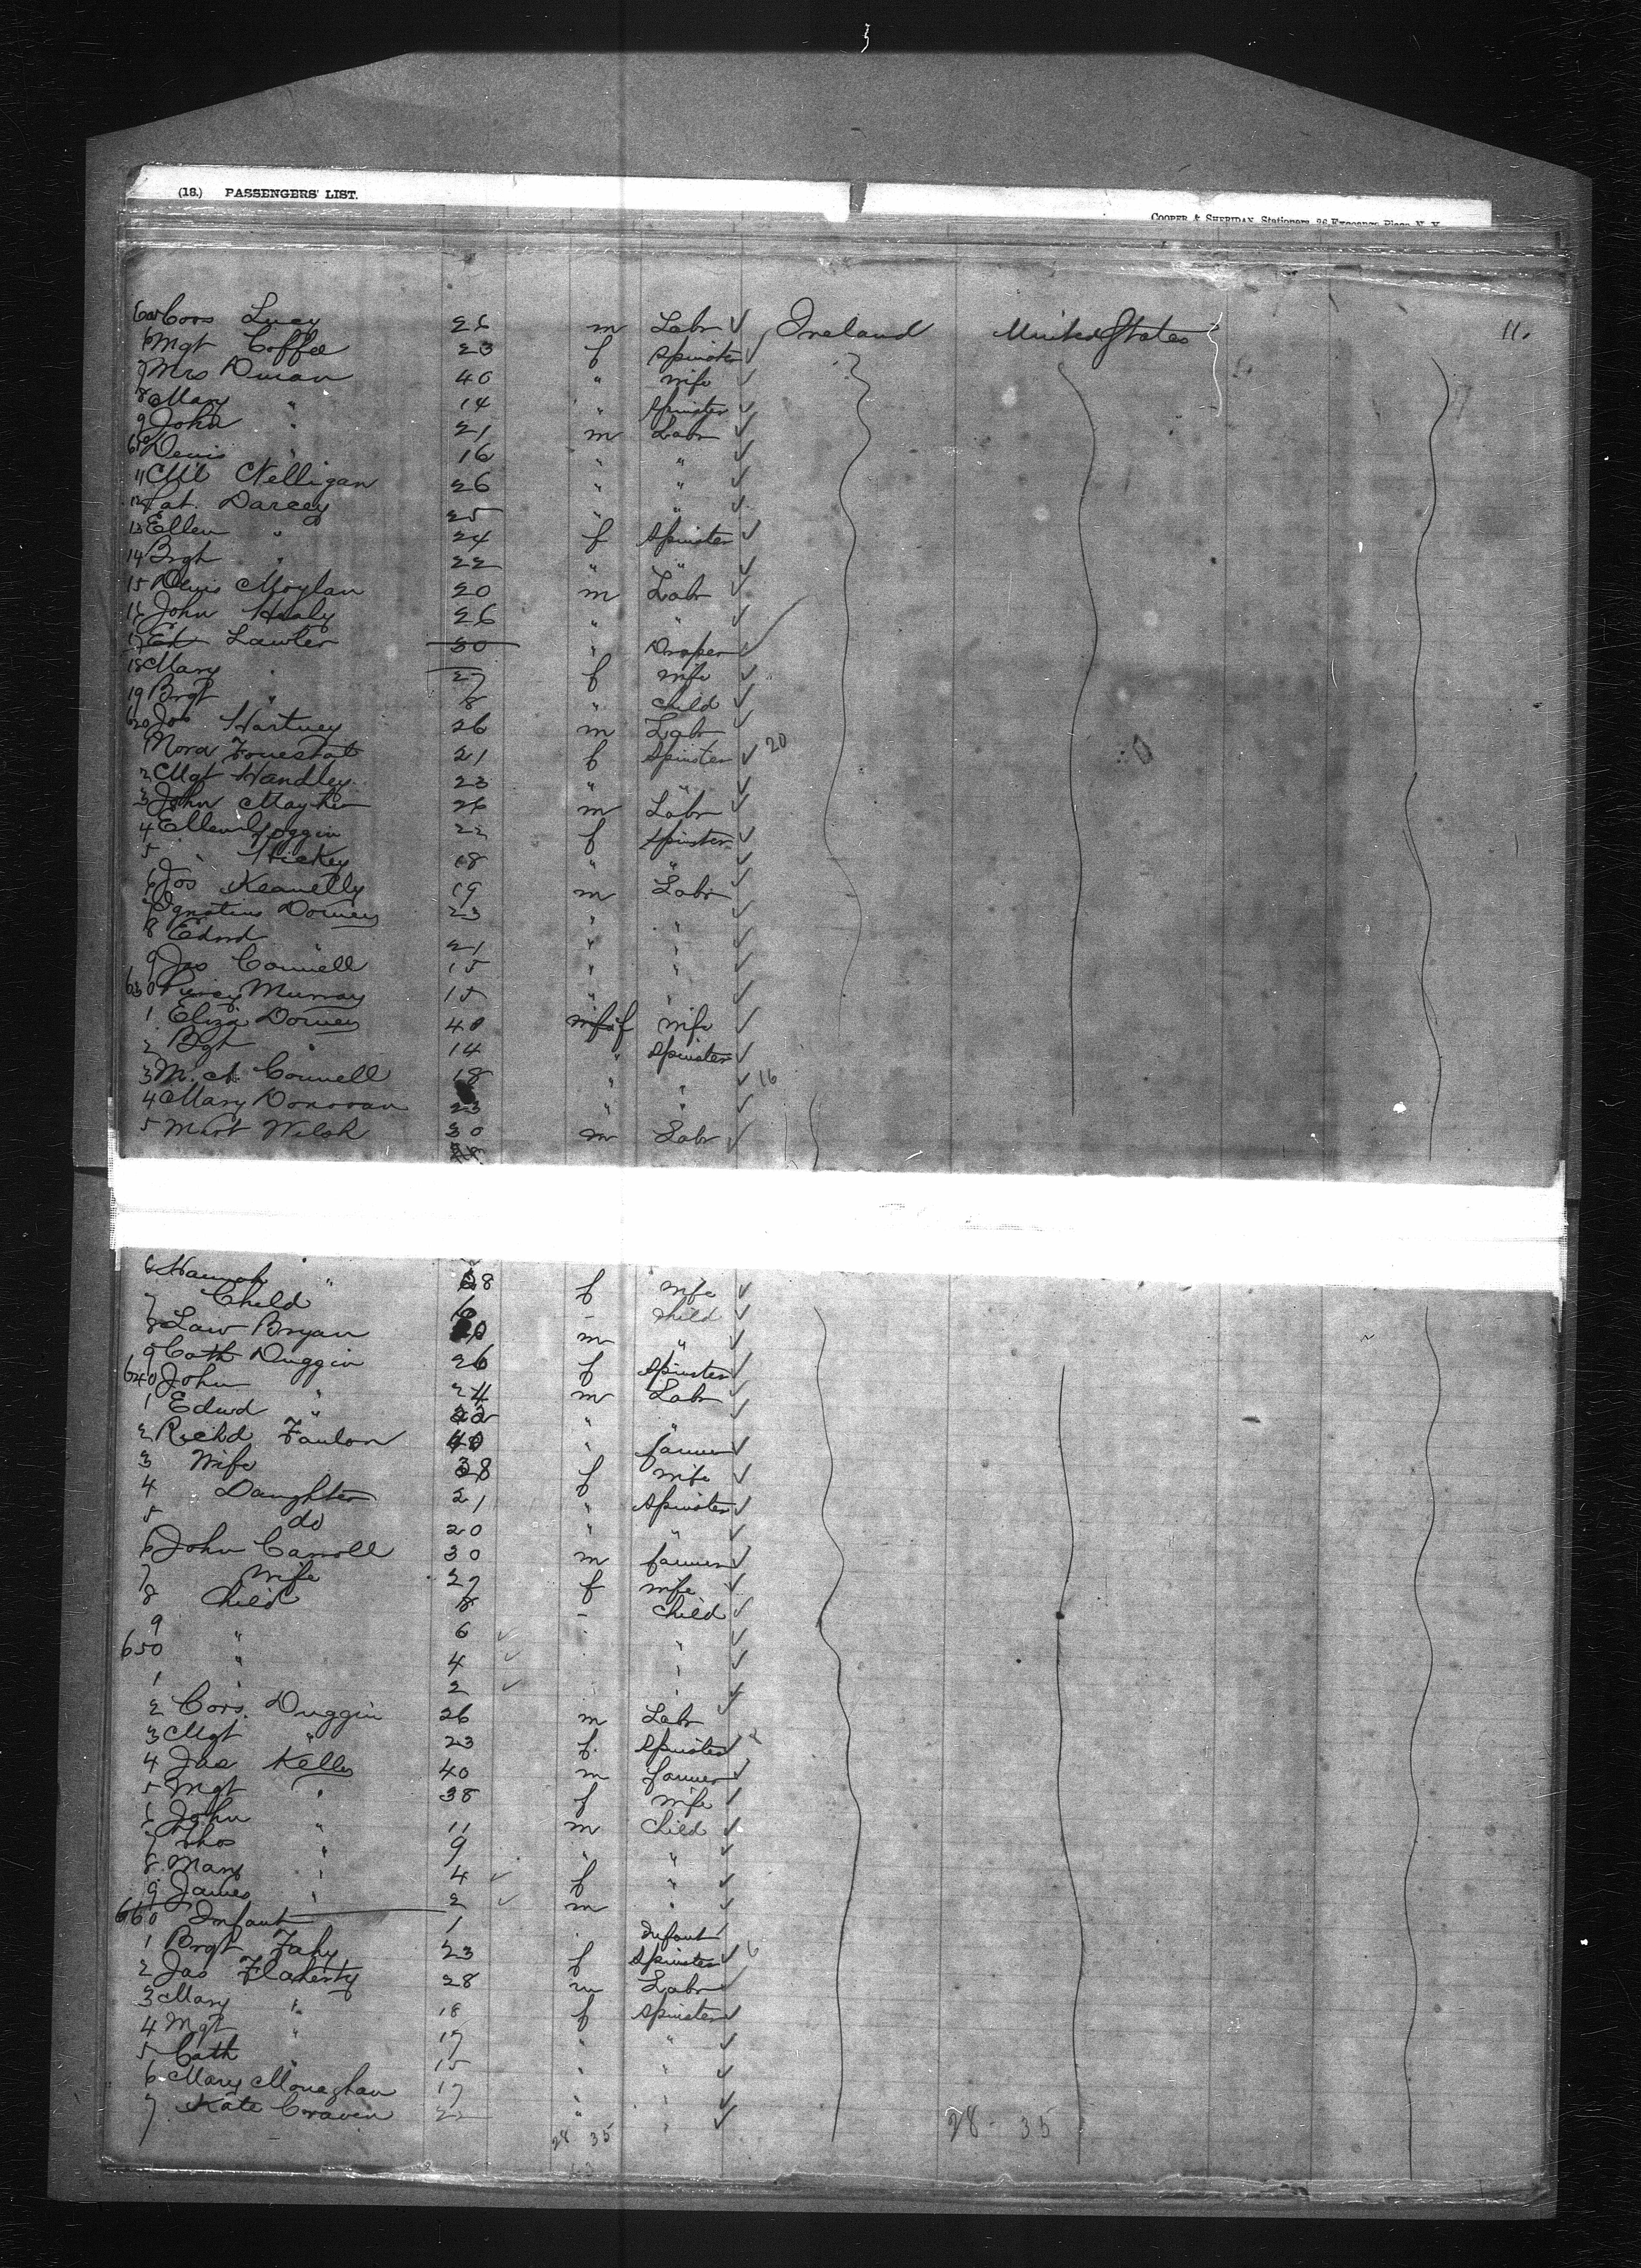 (18.) PASSENGERS' LIST.
COOPER & SHERIDAN, Stationers, 26 Exchange Place N. Y.
605 Cors Lucy 26 m Labr ✓ Ireland United States 11.
6 Mgt Coffee 23 f Spinster ✓
7 Mrs 40 " wife ✓
8 Mary " 14 " Spinster ✓
9 John " 21 m Labr ✓
610 Denis " 16 " " ✓
11 Ml Nelligan 26 " " ✓
12 Pat. Darcey 25 " " ✓
13 Ellen " 24 f Spinster ✓
14 Brgt " 22 " " ✓
15 Denis Moylan 20 m Labr ✓
16 John Healy 26 " " ✓
17 Ed Lawler 30 " Draper ✓
18 Mary " 27 f wife ✓
19 Brgt " 8 " child ✓
620 Jos Hartney 26 m Labr ✓
1 Nora 21 f Spinster ✓ 20
2 Mgt Handley 23 " " ✓
3 John Mayher 26 m Labr ✓
4 Ellen Goggin 22 f Spinster ✓
5 " Hickey 18 " " ✓
6 Jos Keanelly 19 m Labr ✓
7 Ignatius Dorney 23 " " ✓
8 Edwd " 21 " " ✓
9 Jas Connell 15 " " ✓
630 Murray 15 " " ✓
1 Eliza Dorney 40 f wife ✓
2 Bgt " 14 " Spinster ✓
3 M. A. Connell 18 " " ✓ 16
4 Mary Donovan 23 " " ✓
5 Mart Welsh 30 m Labr ✓
6 Hannah " 28 f wife ✓
7 Child 6 - child ✓
8 Law Bryan m " ✓
9 Cath Duggin 26 f Spinster ✓
640 John " 24 m Labr ✓
1 Edwd " 22 " "
2 Richd Fanlon 40 " farmer ✓
3 Wife 38 f wife ✓
4 Daughter 21 " Spinster ✓
5 do 20 " " ✓
6 John Carroll 30 m farmer ✓
7 Wife 27 f wife ✓
8 Child 8 - child ✓
9 " 6 ✓ - " ✓
650 " 4 ✓ " ✓
1 " 2 ✓ " ✓
2 Cors. Duggin 26 m Labr ✓
3 Mgt " 23 f. Spinster ✓ 2
4 Jas Kelly 40 m farmer ✓
5 Mgt " 38 f wife ✓
6 John " 11 m child ✓
7 Thos " 9 " " ✓
8 Mary " 4 ✓ f " ✓
9 James " 2 ✓ m " ✓
660 Infant 1 Infant
1 Brgt Fahy 23 f Spinster ✓ 6
2 Jas Flaherty 28 m Labr ✓
3 Mary " 18 f Spinster ✓
4 Mgt " 17 " " ✓
5 Cath " 15 " " ✓
6 Mary Monaghan 17 " " ✓
7 Kate Craven 22 " " ✓
28 35 28 - 35